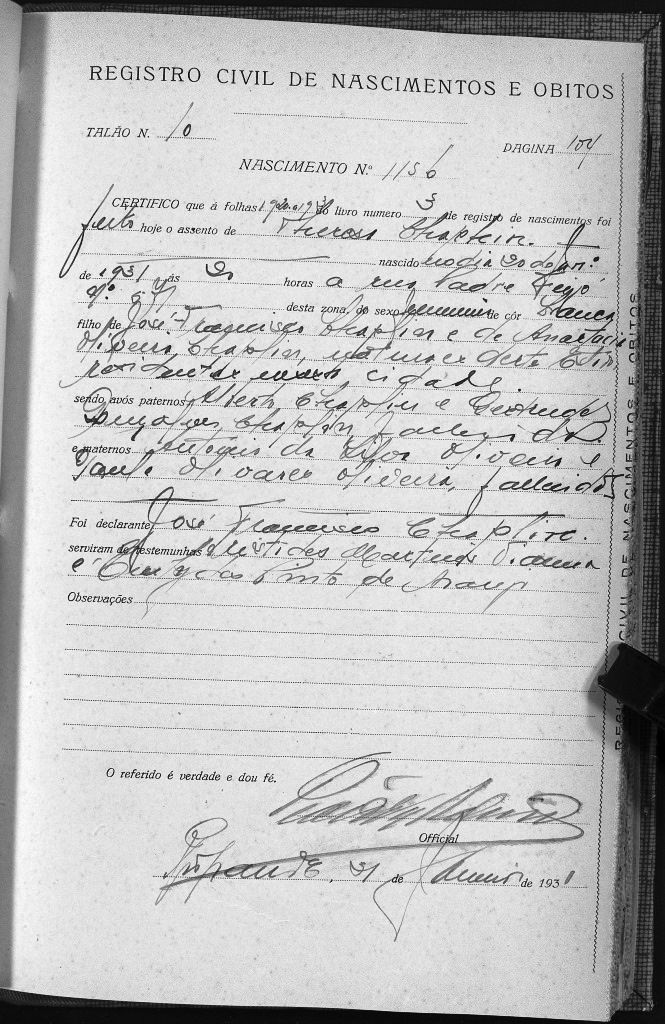 REGISTRO CIVIL DE NASCIMENTOS E OBITOS
TALÃO N. 10
PAGINA 104
NASCIMENTO N.º 1156
CERTIFICO que á folhas do livro numero 3 de registro de nascimentos foi
feito hoje o assento de Chaplin.
nascido no dia
de 1931 ás horas a rua Padre Feijó
n.º desta zona, do sexo feminino de côr branca
filho de José Francisco Chaplin e de
Oliveira Chaplin, naturaes deste Estado
residentes nesta cidade
sendo avós paternos Alberto Chaplin e
Gonçalves Chaplin, fallecidos.
e maternos Antonio da Silva Oliveira e
Olivares Oliveira, fallecidos
Foi declarante José Francisco Chaplin.
serviram de testemunhas Aristides Martins Vianna
e Pinto de Araujo
Observações
O referido é verdade e dou fé.
Official
, 31 de Janeiro de 1931
REGISTRO CIVIL DE NASCIMENTOS E OBITOS